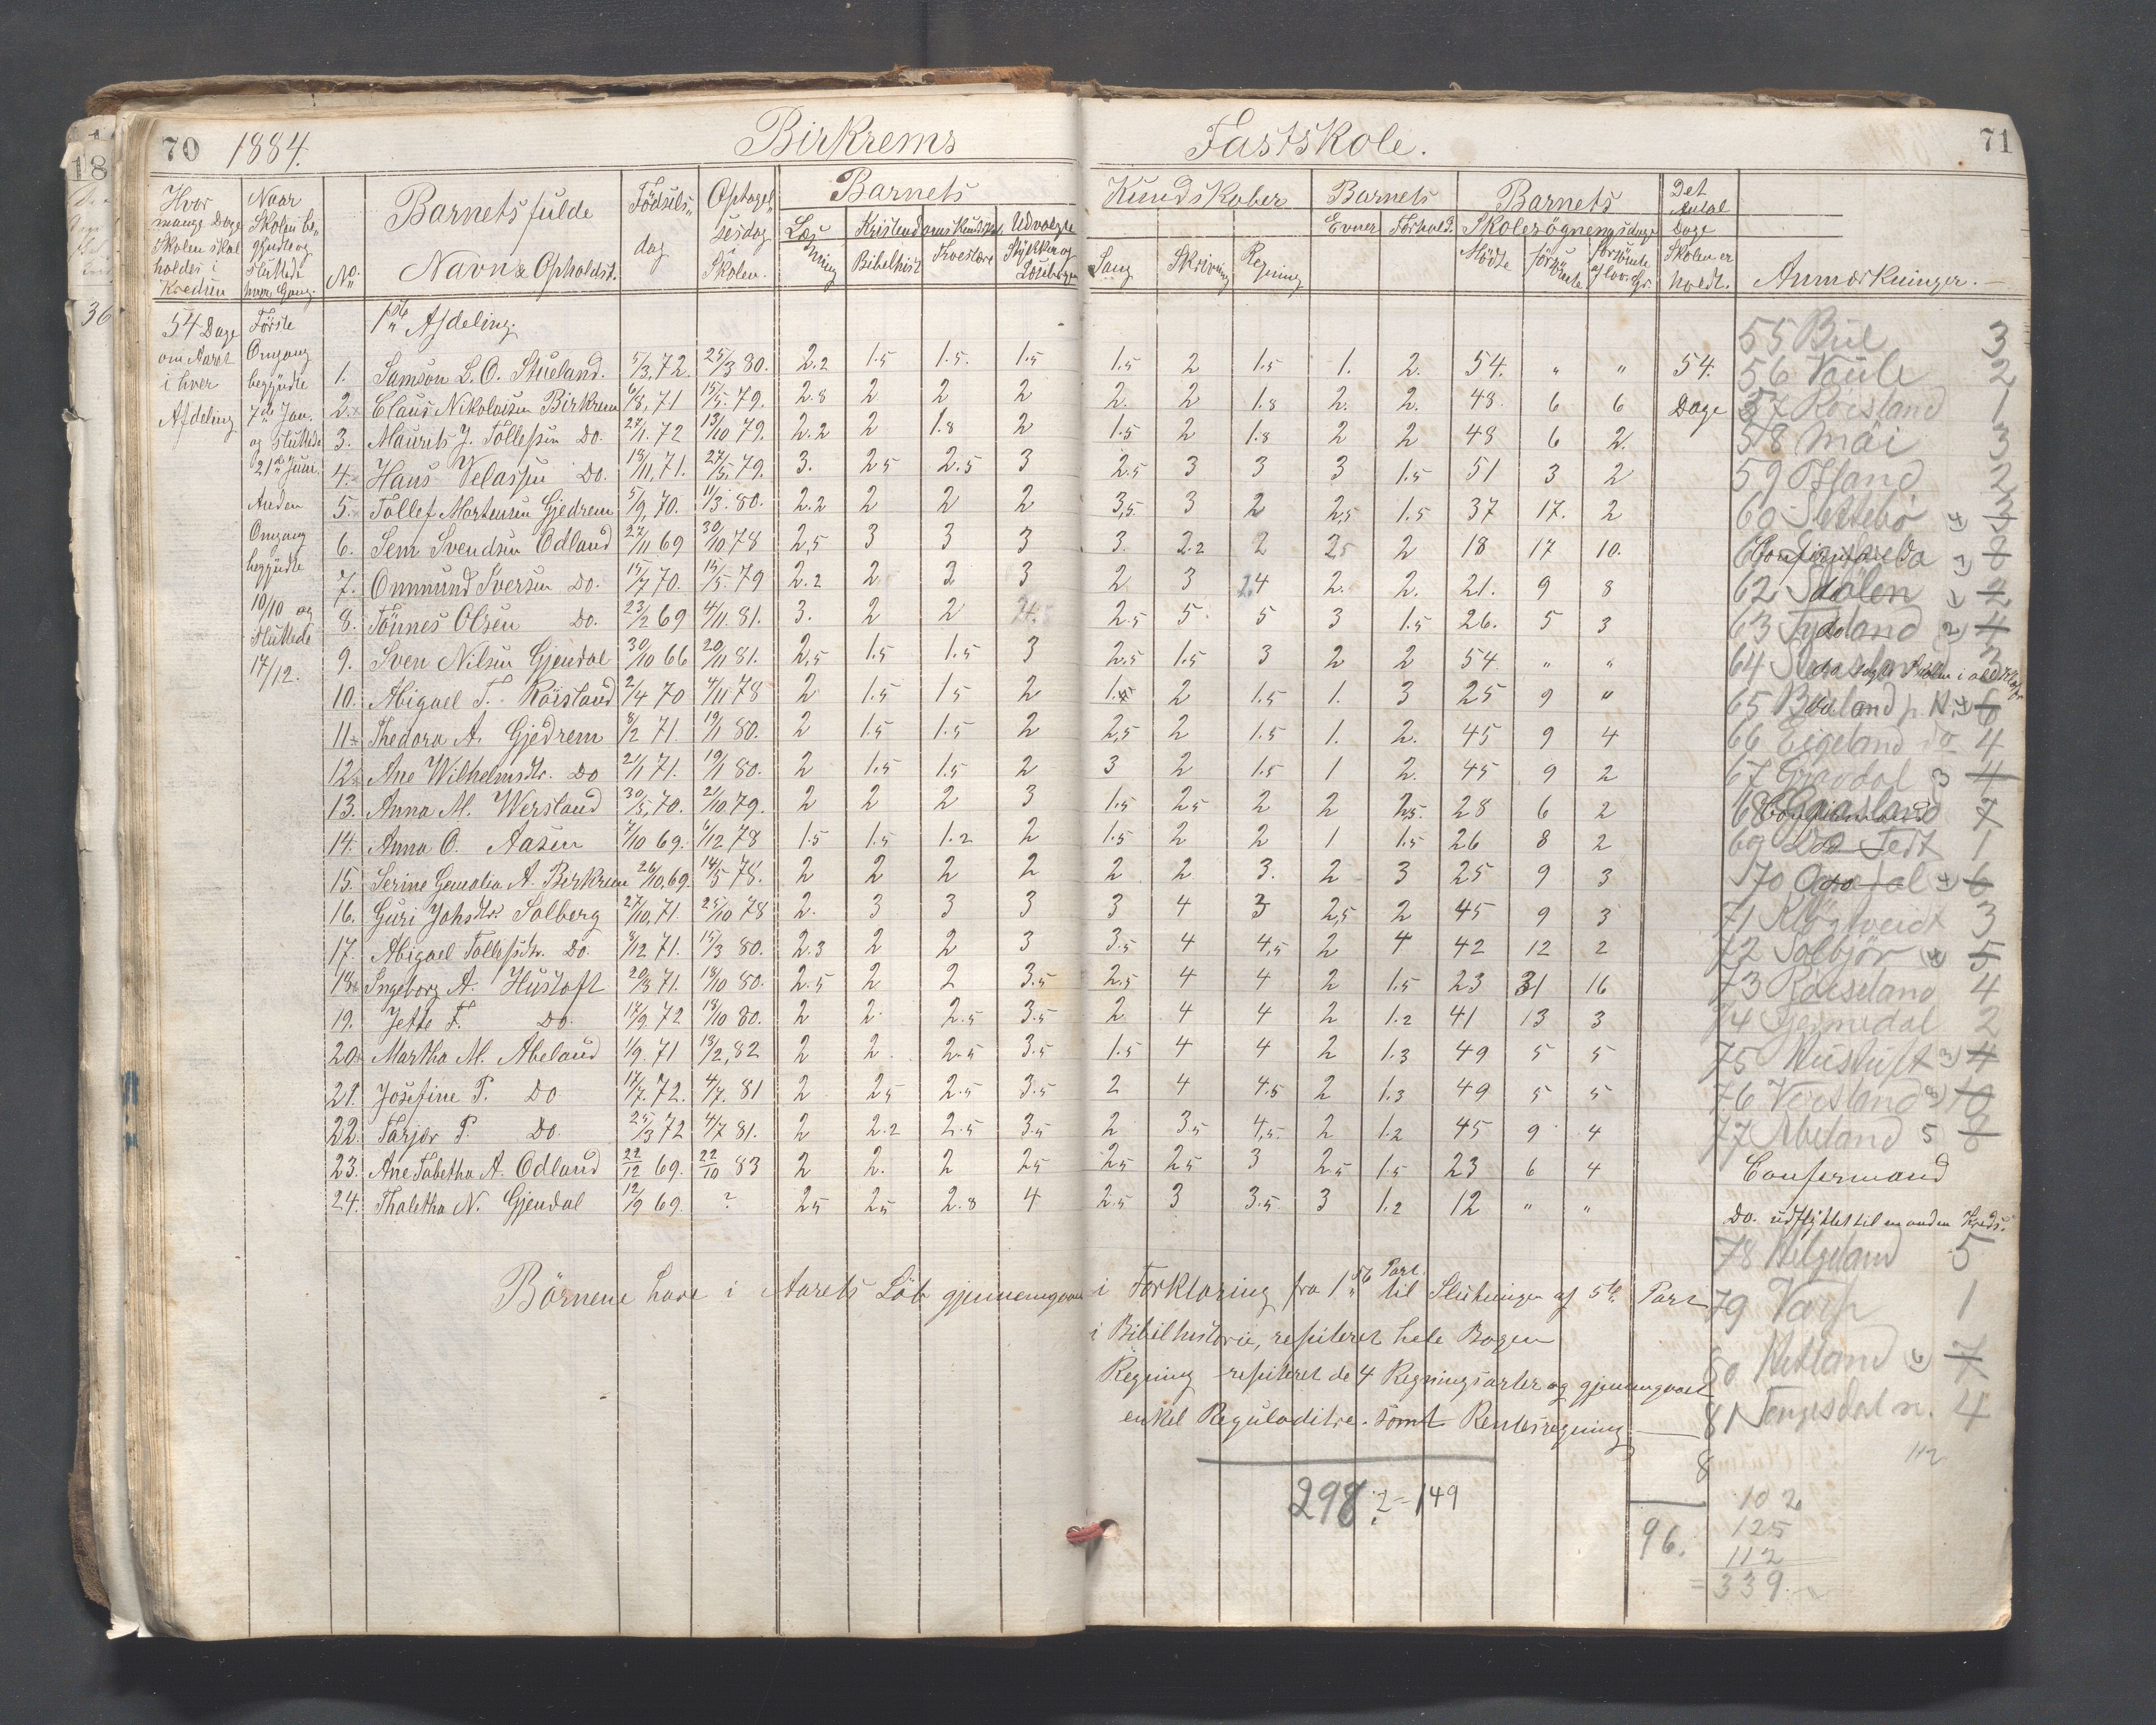 70 1884. Birkrems Fastskole. 71
Hvor mange Dage Skolen skal holdes i Kredsen
Naar Skolen be„ gyndte og sluttede hver Gang.
No.
Barnets fulde Navn & Opholdst.
Födsels„ dag
Optagel„ sesdag i Skolen.
Barnets Kundskaber
Læs ning
Kristendomskundskab
Bibelhist Troeslære
Udvalgte Stykker af Læsebogen
Sang Skrivning Regning
Barnets
Evner Forhold.
Barnets
Skolesögnensdage
Mödte forsömte forsömte af lov. Gr.
Det Antal Dage Skolen er holdt.
Anmærkninger.
54 Dage om Aaret i hver Afdeling
Förste Omgang begyndte 7de Jan. og sluttede 21de Juni.
Anden Omgang begyndte 10/10 og sluttede 17/12.
1ste Afdeling.
1. Samson L. O. Stueland. 5/3,72. 25/3 80. 2.2 1.5 1.5. 1.5 1.5 2 1.5 1. 2. 54. „ „ 54.
2. Claus Nikolaisen Birkrem 6/8,71 15/5.79. 2.8 2 2 2 2. 2 1.8 2. 2. 48. 6 6 Dage
3. Maurits J. Tollefsen Do. 27/1.72 13/10 79. 2.2 2 1.8 2 1.5 2 1.8 2 2 48 6 2.
4. Hans Velassen Do. 18/11,71. 27/5,79. 3. 25 2.5 3 2.5 3 3 3 1.5 51 3 2
5. Tollef Mortensen Gjedrem 5/9,70. 11/3.80. 2.2 2 2 2 3,5. 3 2 2,5 1.5 37 17. 2
6. Sem Svendsen Odland 27/11 69 30/10 78 2,5 3 3 3 3. 2.2 2 25 2 18 17 10.
7. Ommund Iversen Do. 15/7 70. 15/5.79 2.2 2 2 3 2 3 24 2. 2. 21. 9 8
8. Tönnes Olsen Do. 23/2 69 4/11 81. 3. 2 2 2.5 5 5 3 1.5 26. 5 3
9. Sven Nilsen Gjendal 30/10 66 20/11 81. 2,5 1.5 1.5 3 2.5 1.5 3 2 2 54 „ „
10. Abigael T. Röisland 2/4 70 4/11 78 2 1.5 15 2 1.5 2 1.5 1. 3 25 9 „
11. Thedora A. Gjedrem 8/2 71. 19/1 80. 2 1.5 1.5 2 2,5 2 1.5 1. 2. 45 9 4
12. Ane Wilhelmsdtr. Do 2/1 71. 19/1 80. 2 1.5 1.5 2 3 2 1.5 1 2. 45 9 2
13. Anna M. Wersland 30/5,70. 2/10.79. 2 2 2 3 1.5 25 2 2 2,5. 28 6 2
14. Anna O. Aasen 7/10 69. 6/12 78 1.5 1.5 1.2 2 1.5 2 2 1 1.5 26 8 2
15. Serine Gemalia A. Birkrem 26/10,69. 14/5 78. 2 2 2 2 2 2 3. 2 3 25 9 3
16. Guri Johsdtr. Solberg 27/10,71. 25/10 78 2. 3 3 3 3 4 3 2,5 2 45 9 3
17. Abigael Tollefsdtr. Do. 8/12 71. 15/3 80. 2.3 2 2 3 3.5 4 4,5 2 4 42 12 2
18. Ingeborg A. Hustoft 20/3 71. 18/10 80. 2.5 2 2 3.5 2.5 4 4 2 1.5 23 31 16
19. Jette T. Do. 17/9.72 18/10 80. 2 2 2.5 3.5 2 4 4 2 1.2 41 13 3
20. Martha M. Abeland 1/9.71 18/2,82 2 2 2.5 3.5 1.5 4 4 2 1.3 49 5 5
21. Josefine P. Do 17/7.72. 4/7.81 2 25 2.5 3.5 2 4 4.5 2 1.3 49 5 5
22. Tarjer P. Do. 25/3 72 4/7 81. 2 2.2 2.5 3.5 2 3.5 4,5. 2 1.2 45 9 4
23. Ane Tabetha A. Odland 22/12 69. 22/10 83 2 2. 2 25 25 25 3 2.5 1.5 23 6 4 Confirmand
24. Thaletha N. Gjendal 12/9 69. ? 25 25 2.8 4 2.5 3 3.5 3 1.2 12 „ „ Do. udflyttet til en anden Kreds.
Börnene have i Aarets Löb gjennemgaaet i Forklaring fra 1ste Part. til Slutningen af 5te Part
i Bibelhistorie, repiteret hele Bogen
Regning repiteret de 4 Regningsarter og gjennemgaaet
enkel Reguladitre. samt Rentesregning
298:2=149
96.
55 Bue 3
56 Vaule 2
57 Röisland 1
58 Mai 3
59 2
60 Slettebö
62 Stölen
65
66 Eigeland 4
67 Gravdal 3 4
68 7
69 1
70 6
71 3
72 Solbjör 5
73 4
74 Gjermedal 2
75 Hustuft 4
76 Versland 10
77 Abeland 5 8
78 Helgeland 5
79 Varp 1
80 Netland 7
81 Tengesdal n. 4
8
112
102
125
112
=339.